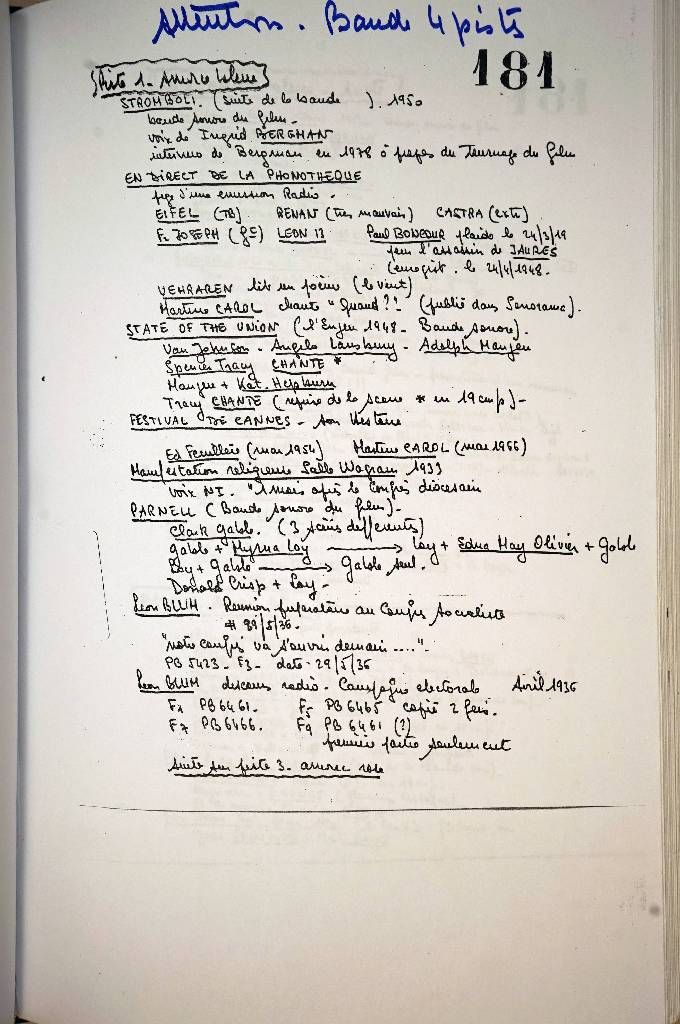 Attention. Bande 4 pistes
181
Piste 1. Amorce bleue
STROMBOLI. (Suite de la bande ). 1950
bande sonore du film -
voix de Ingrid BERGMAN
interview de Bergman en 1978 à propos du tournage du film
EN DIRECT DE LA PHONOTHEQUE
d'une emission Radio -
EIFEL (TB) RENAN (très mauvais) CASTRA (ext)
Fr JOSEPH (gE) LEON 13 Paul BONCOUR plaide le 24/3/19
pour l'assassin de JAURES
(enregist. le 24/4/1948.
VEHRAREN lit un poème (le vent)
Martine CAROL chante "Quand ?! (publié dans Sonorama).
STATE OF THE UNION (l'Enjeu 1948 - Bande sonore).
Van Johnson - Angela Lansbury - Adolph Menjou
Spencer Tracy CHANTE *
Menjou + Kat. Hepburn
Tracy CHANTE (reprise de la scene * en 19cm/s) -
FESTIVAL DE CANNES - son histoire
Ed Feuillère (mai 1954) Martine CAROL (mai 1966)
Manifestation religieuse Salle Wagram 1933
voix NI. "1 mois après le Congrès diocesain
PARNELL (Bande sonore du film) -
Clark Gable. (3 scènes differentes)
Gable + Myrna Loy → Loy + Edna May Olivier + Gable
Loy + Gable → Gable seul.
Donald Crisp + Loy -
Leon BLUM. Reunion preparatoire au Congrès Socialiste
/5/36 -
"notre congrès va s'ouvrir demain ....." -
PB 5423 - F3 - date - 29/5/36
Leon BLUM discours radio - Campagne electorale Avril 1936
F1 PB 6461. F5 PB 6465 copié 2 fois.
F7 PB 6466. F9 PB 6461 (?)
première partie seulement
suite sur piste 3 - amorce rose